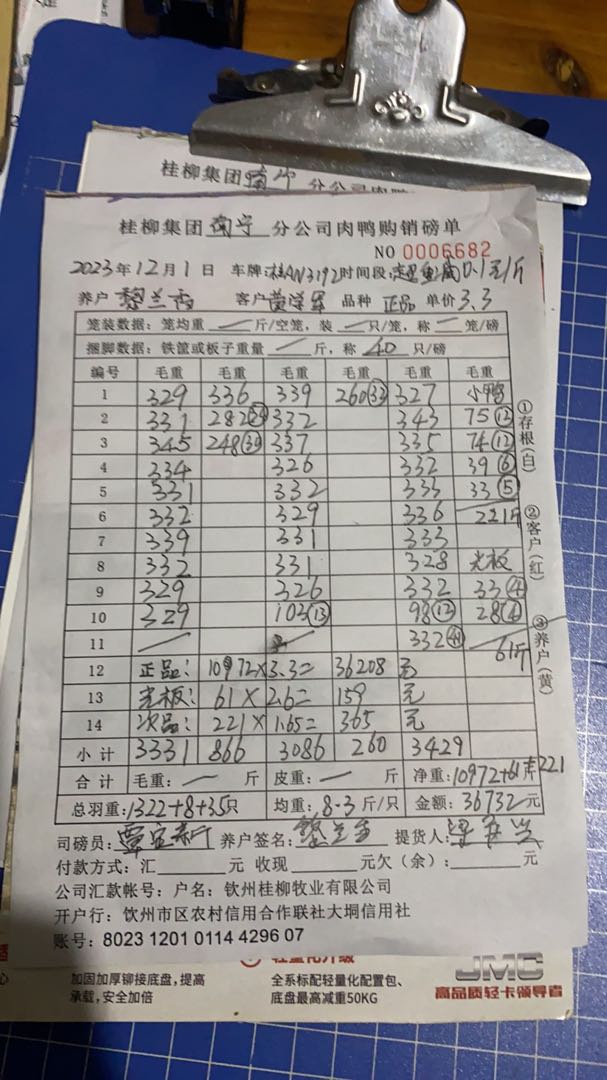 桂柳集团南宁分公司肉
桂柳集团 南宁 分公司肉鸭购销磅单
NO 0006682
2023年12月1日 车牌:桂AN3192 时间段:超重扇0.1元/斤
养户 黎兰香 客户 品种 正品 单价 3.3
笼装数据: 笼均重 — 斤/空笼, 装 — 只/笼, 称 — 笼/磅
捆脚数据: 铁筐或板子重量 — 斤, 称 40 只/磅
编号 毛重 毛重 毛重 毛重 毛重 毛重
1 329 336 339 260(33) 327 小鸭
2 331 282 332 343 75(12)
3 345 248 337 335 74(12)
4 334 326 332 39(6)
5 331 332 333 33(5)
6 332 329 336 221斤
7 339 331 333
8 332 331 328 光板
9 329 326 332 33(4)
10 329 103(13) 98(12) 28(4)
11 — 332 61斤
12 正品: 10972×3.3= 36208 元
13 光板: 61×2.6= 159 元
14 次品: 221×1.65= 365 元
小计 3331 866 3086 260 3429
合计 毛重: — 斤 皮重: — 斤 净重: 10972+61 221
总羽重: 1322+8+35只 均重: 8.3 斤/只 金额: 36732 元
司磅员: 养户签名: 提货人:
付款方式: 汇 元 收现 元欠(余): 元
公司汇款帐号: 户名: 钦州桂柳牧业有限公司
开户行: 钦州市区农村信用合作联社大垌信用社
账号: 8023 1201 0114 4296 07
①存根(白)
②客户(红)
③养户(黄)
轻量化升级
加固加厚铆接底盘,提高
承载,安全加倍
全系标配轻量化配置包、
底盘最高减重50KG
JMC
高品质轻卡领导者